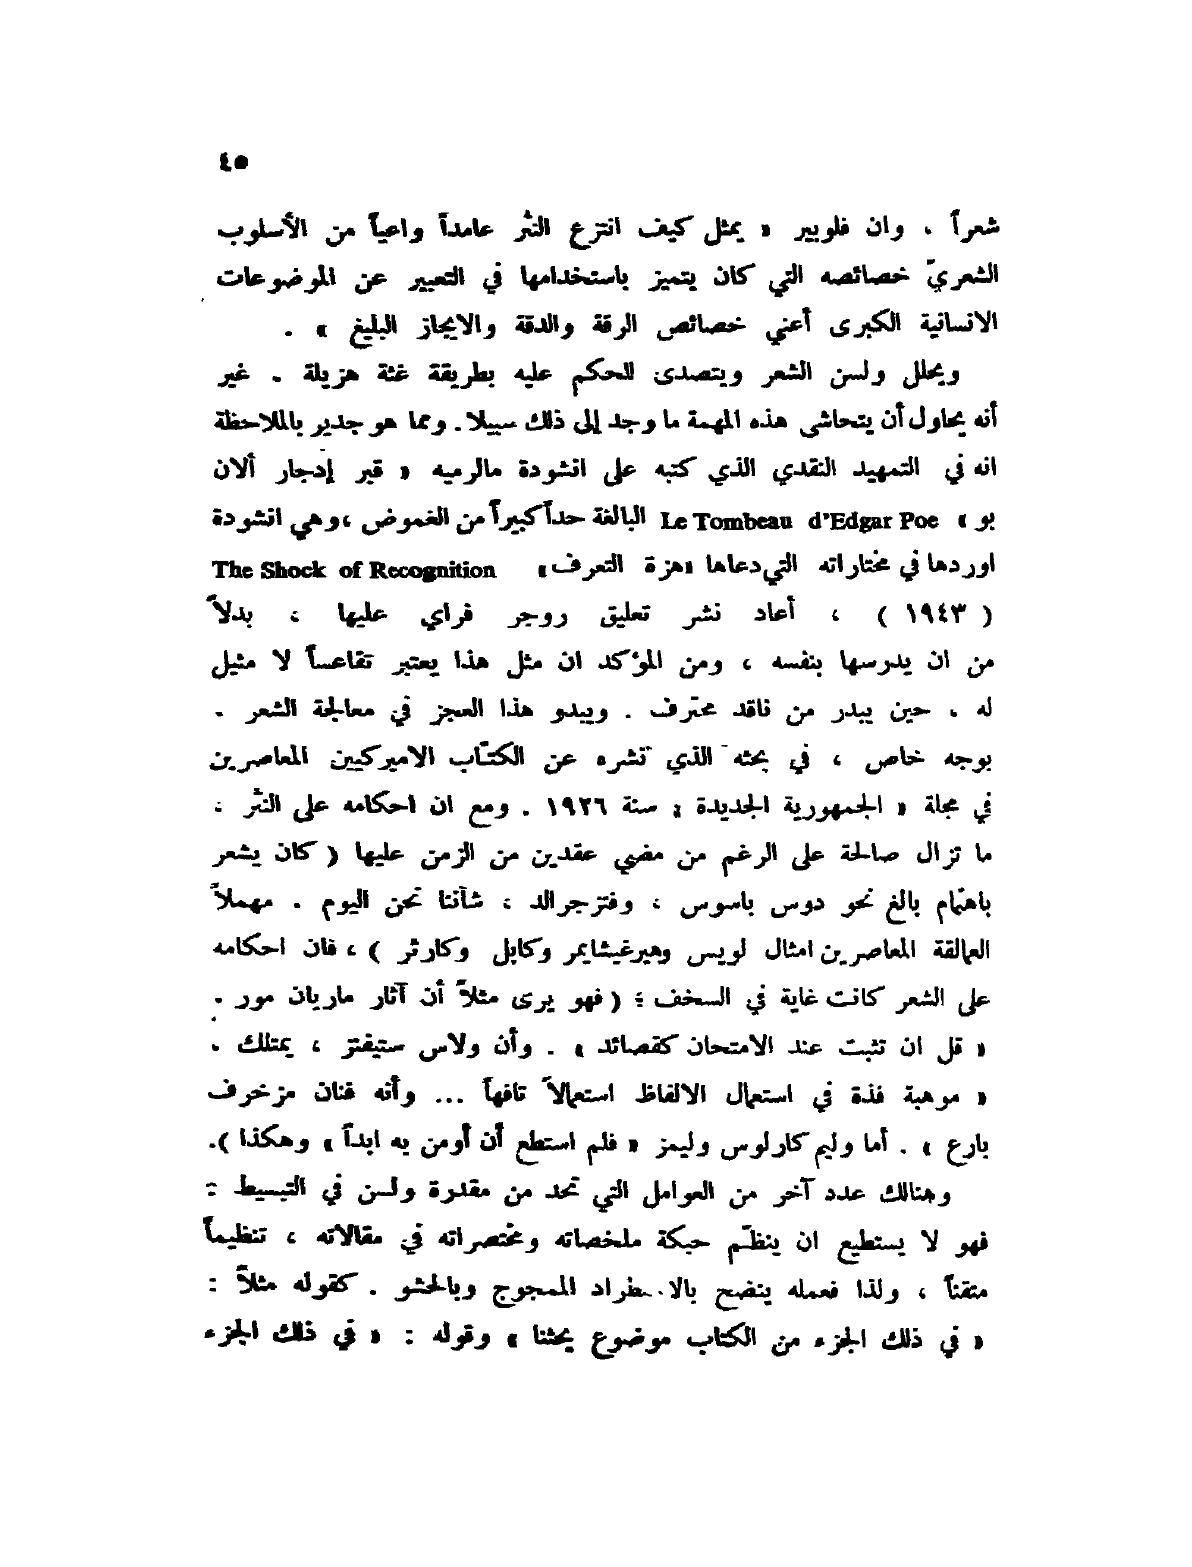 ٤٥
شعراً ، وان فلوبير « يمثل كيف انتزع النثر عامداً واعياً من الأسلوب
الشعريّ خصائصه التي كان يتميز باستخدامها في التعبير عن الموضوعات
الانسانية الكبرى أعني خصائص الرقة والدقة والايجاز البليغ » .
ويحلل ولسن الشعر ويتصدى للحكم عليه بطريقة غثة هزيلة . غير
أنه يحاول أن يتحاشى هذه المهمة ما وجد إلى ذلك سبيلا. ومما هو جدير بالملاحظة
انه في التمهيد النقدي الذي كتبه على انشودة مالرميه « قبر إدجار ألان
بو » Le Tombeau d'Edgar Poe البالغة حداً كبيراً من الغموض ،وهي انشودة
اوردها في مختاراته التي دعاها «هزة التعرف» The Shock of Recognition
( ١٩٤٣ ) ، أعاد نشر تعليق روجر فراي عليها ، بدلاً
من ان يدرسها بنفسه ، ومن المؤكد ان مثل هذا يعتبر تقاعساً لا مثيل
له ، حين يبدر من ناقد محترف . ويبدو هذا العجز في معالجة الشعر .
بوجه خاص ، في بحثه الذي نشره عن الكتّاب الاميركيين المعاصرين
في مجلة « الجمهورية الجديدة » سنة ١٩٢٦ . ومع ان احكامه على النثر ،
ما تزال صالحة على الرغم من مضي عقدين من الزمن عليها ( كان يشعر
باهتمام بالغ نحو دوس باسوس ، وفتزجرالد ، شأننا نحن اليوم . مهملاً
العمالقة المعاصرين امثال لويس وهيرغيشايمر وكابل وكارثر ) ، فان احكامه
على الشعر كانت غاية في السخف ؛ ( فهو يرى مثلاً أن آثار ماريان مور .
« قل ان تثبت عند الامتحان كقصائد » . وأن ولاس ستيفنز ، يمتلك .
« موهبة فذة في استعمال الالفاظ استعمالاً تافهاً ... وأنه فنان مزخرف
بارع » . أما وليم كارلوس وليمز « فلم استطع أن أومن به ابداً » وهكذا ).
وهنالك عدد آخر من العوامل التي تحد من مقدرة ولسن في التبسيط :
فهو لا يستطيع ان ينظّم حبكة ملخصاته ومختصراته في مقالاته ، تنظيماً
متقناً ، ولذا فعمله ينضح بالاستطراد الممجوج وبالحشو . كقوله مثلاً :
« في ذلك الجزء من الكتاب موضوع بحثنا » وقوله : « في ذلك الجزء